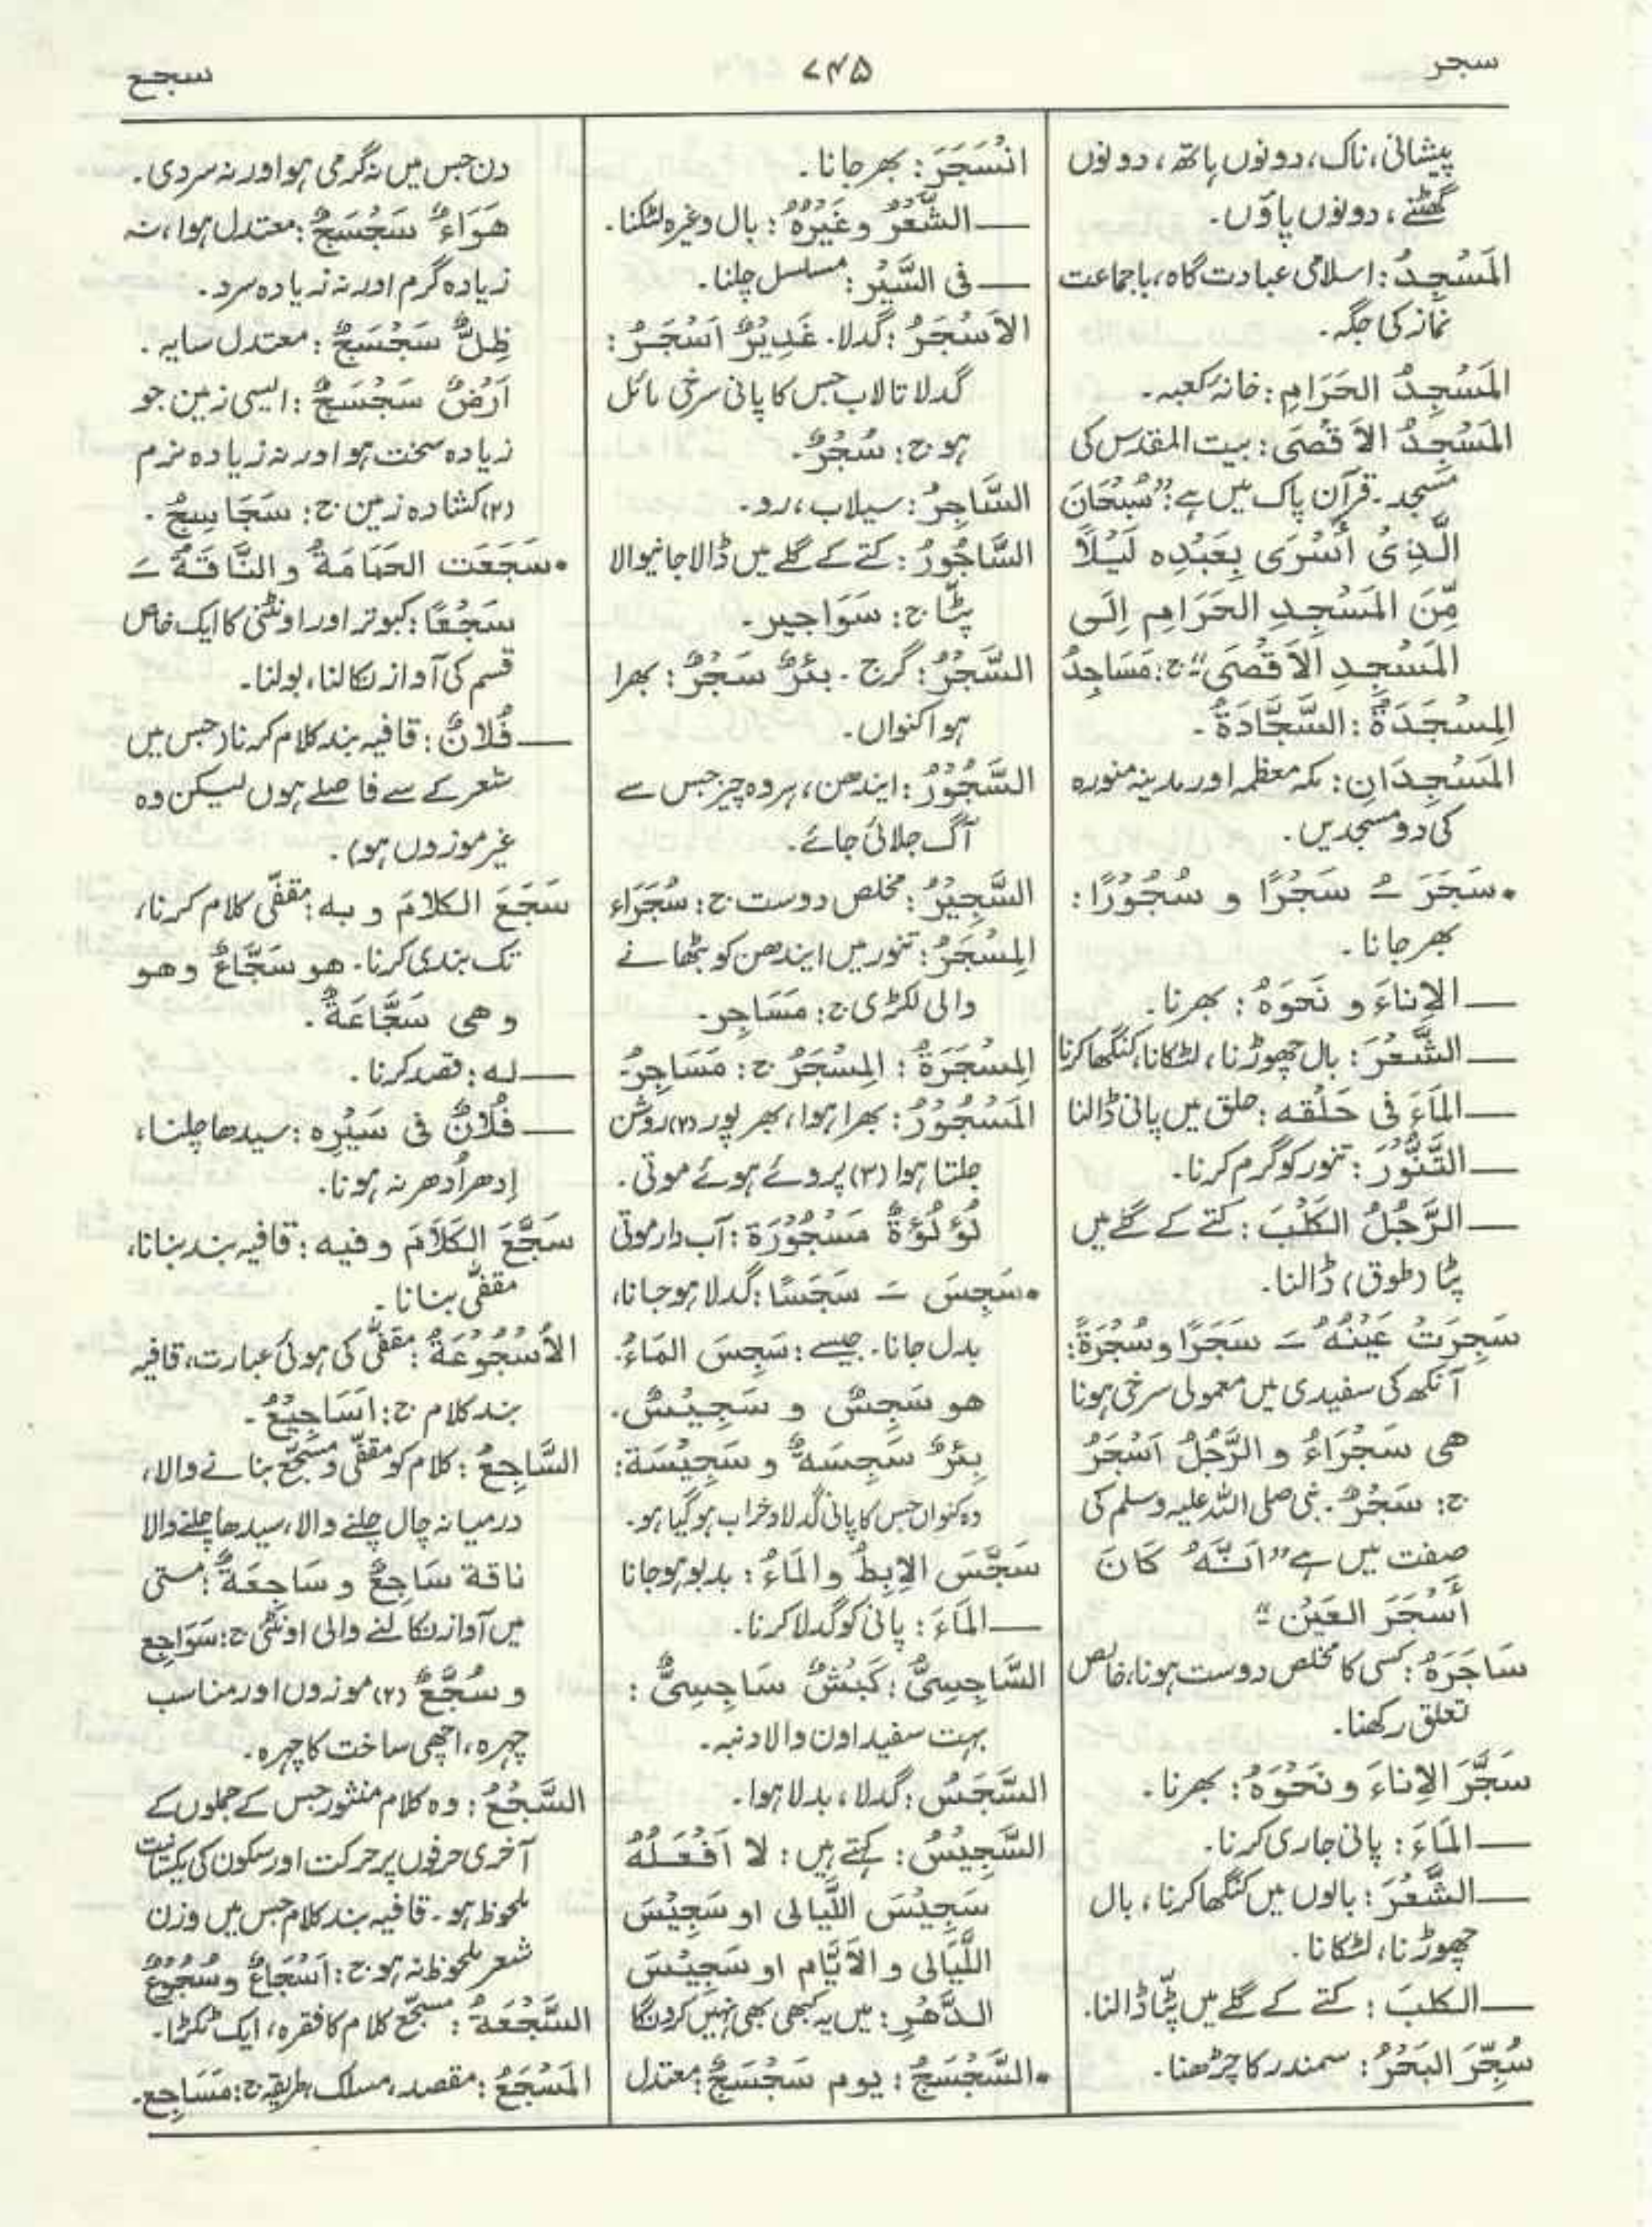 سجر
۷۴۵
سجع
پیشانی، ناک، دونوں ہاتھ، دونوں
گھٹنے، دونوں پاؤں۔
المَسْجِدُ: اسلامی عبادت گاہ، باجماعت
نماز کی جگہ۔
المَسْجِدُ الحَرَامِ: خانہ کعبہ۔
المَسْجِدُ الاَقْصَی: بیت المقدس کی
مسجد۔ قرآن پاک میں ہے: "سُبْحَانَ
الَّذِیْ أَسْرَی بِعَبْدِہ لَیْلاً
مِّنَ المَسْجِدِ الحَرَامِ اِلَی
المَسْجِدِ الاَقْصَی" ج: مَسَاجِدُ
المِسْجَدَةُ: السَّجَّادَةُ۔
المَسْجِدَانِ: مکہ معظمہ اور مدینہ منورہ
کی دو مسجدیں۔
•سَجَرَ ـُ سَجْرًا و سُجُوْرًا:
بھر جانا۔
ــ الاِناءَ و نَحوَہُ: بھرنا۔
ــ الشَّعْرَ: بال چھوڑنا، لٹکانا، کنگھا کرنا
ــ المَاءَ فی حَلْقہ: حلق میں پانی ڈالنا
ــ التَّنُّوْرَ: تنور کو گرم کرنا۔
ــ الرَّجُلُ الکَلْبَ: کتے کے گلے میں
پٹا (طوق) ڈالنا۔
سَجِرَتْ عَیْنُہُ ـَ سَجَرًا و سُجْرَةً:
آنکھ کی سفیدی میں معمولی سرخی ہونا
ھی سَجْرَاءُ و الرَّجُلُ اَسْجَرُ
ج: سُجْرٌ۔ نبی صلی اللہ علیہ وسلم کی
صفت میں ہے "اَنَّہُ کَانَ
أَسْجَرَ العَیْنِ"
سَاجَرَہُ: کسی کا مخلص دوست ہونا، خالص
تعلق رکھنا۔
سَجَّرَ الاِناءَ و نَحْوَہُ: بھرنا۔
ــ المَاءَ: پانی جاری کرنا۔
ــ الشَّعْرَ: بالوں میں کنگھا کرنا، بال
چھوڑنا، لٹکانا۔
ــ الکلبَ: کتے کے گلے میں پٹّا ڈالنا۔
سُجِّرَ البَحْرُ: سمندر کا چڑھنا۔
انْسَجَرَ: بھر جانا۔
ــ الشَّعْرُ وغَیْرُہُ: بال وغیرہ لٹکنا۔
ــ فی السَّیْرِ: مسلسل چلنا۔
الاَسْجَرُ: گدلا۔ غَدِیْرٌ اَسْجَرُ:
گدلا تالاب جس کا پانی سرخی مائل
ہو ج: سُجْرٌ۔
السَّاجِرُ: سیلاب، رو۔
السَّاجُورُ: کتے کے گلے میں ڈالا جانیوالا
پٹّا ج: سَوَاجیر۔
السَّجْرُ: گرج۔ بئرٌ سَجْرٌ: بھرا
ہوا کنواں۔
السَّجُوْرُ: ایندھن، ہر وہ چیز جس سے
آگ جلائی جائے۔
السَّجِیْرُ: مخلص دوست ج: سُجَرَاء
المِسْجَرُ: تنور میں ایندھن کو بٹھانے
والی لکڑی ج: مَسَاجِر۔
المِسْجَرَةُ: المِسْجَرُ ج: مَسَاجِرُ۔
المَسْجُوْرُ: بھرا ہوا، بھر پور (۲) روشن
جلتا ہوا (۳) پروئے ہوئے موتی۔
لُؤلُؤةٌ مَسْجُوْرَة: آب دار موتی
•سَجِسَ ـَ سَجَسًا: گدلا ہو جانا،
بدل جانا۔ جیسے: سَجِسَ المَاءُ۔
ھو سَجِسٌ و سَجِیْسٌ۔
بِئرٌ سَجِسَةٌ و سَجِیْسَة:
وہ کنواں جس کا پانی گدلا و خراب ہو گیا ہو۔
سَجَّسَ الاِبِطُ والمَاءُ: بدبو ہو جانا
ــ المَاءَ: پانی کو گدلا کرنا۔
السَّاجِسِیُّ: کَبْشٌ سَاجِسِیٌّ:
بہت سفید اون والا دنبہ۔
السَّجَسُ: گدلا، بدلا ہوا۔
السَّجِیْسُ: کہتے ہیں: لا اَفْعَلُہُ
سَجِیْسَ اللَّیالی او سَجِیْسَ
اللَّیَالی و الاَیَّام او سَجِیْسَ
الدَّھْرِ: میں یہ کبھی بھی نہیں کروں گا
•السَّجْسَجُ: یوم سَجْسَجٌ: معتدل
دن جس میں نہ گرمی ہو اور نہ سردی۔
ھَوَاءٌ سَجْسَجٌ: معتدل ہوا، نہ
زیادہ گرم اور نہ زیادہ سرد۔
ظِلٌّ سَجْسَجٌ: معتدل سایہ۔
اَرْضٌ سَجْسَجٌ: ایسی زمین جو
زیادہ سخت ہو اور نہ زیادہ نرم
(۲) کشادہ زمین ج: سَجَاسِجُ۔
•سَجَعَت الحَمَامَةُ و النَّاقَةُ ـَ
سَجْعًا: کبوتر اور اونٹنی کا ایک خاص
قسم کی آواز نکالنا، بولنا۔
ــ فُلانٌ: قافیہ بند کلام کرنا (جس میں
شعر کے سے فاصلے ہوں لیکن وہ
غیر موزوں ہو)۔
سَجَعَ الکلامَ و بہ: مقفّٰی کلام کرنا،
تک بندی کرنا۔ ھو سَجَّاعٌ وھو
وھی سَجَّاعَةٌ۔
ــ لہ: قصد کرنا۔
ــ فُلانٌ فی سَیْرِہ: سیدھا چلنا،
اِدھر اُدھر نہ ہونا۔
سَجَّعَ الکَلاَمَ و فیہ: قافیہ بند بنانا،
مقفّٰی بنانا۔
الأُسْجُوْعَةُ: مقفّٰی کی ہوئی عبارت، قافیہ
بند کلام ج: اَسَاجِیْعُ۔
السَّاجِعُ: کلام کو مقفّٰی و مسجّع بنانے والا،
درمیانہ چال چلنے والا، سیدھا چلنے والا
ناقة سَاجِعٌ و سَاجِعَةٌ: مستی
میں آواز نکالنے والی اونٹنی ج: سَوَاجِع
و سُجَّعٌ (۲) موزوں اور مناسب
چہرہ، اچھی ساخت کا چہرہ۔
السَّجْعُ: وہ کلام منثور جس کے جملوں کے
آخری حرفوں پر حرکت اور سکون کی یکسانیت
ملحوظ ہو۔ قافیہ بند کلام جس میں وزن
شعر ملحوظ نہ ہو ج: اَسْجَاعٌ و سُجُوْعٌ
السَّجْعَةُ: مسجّع کلام کا فقرہ، ایک ٹکڑا۔
المَسْجَعُ: مقصد، مسلک، طریقہ ج: مَسَاجِع۔